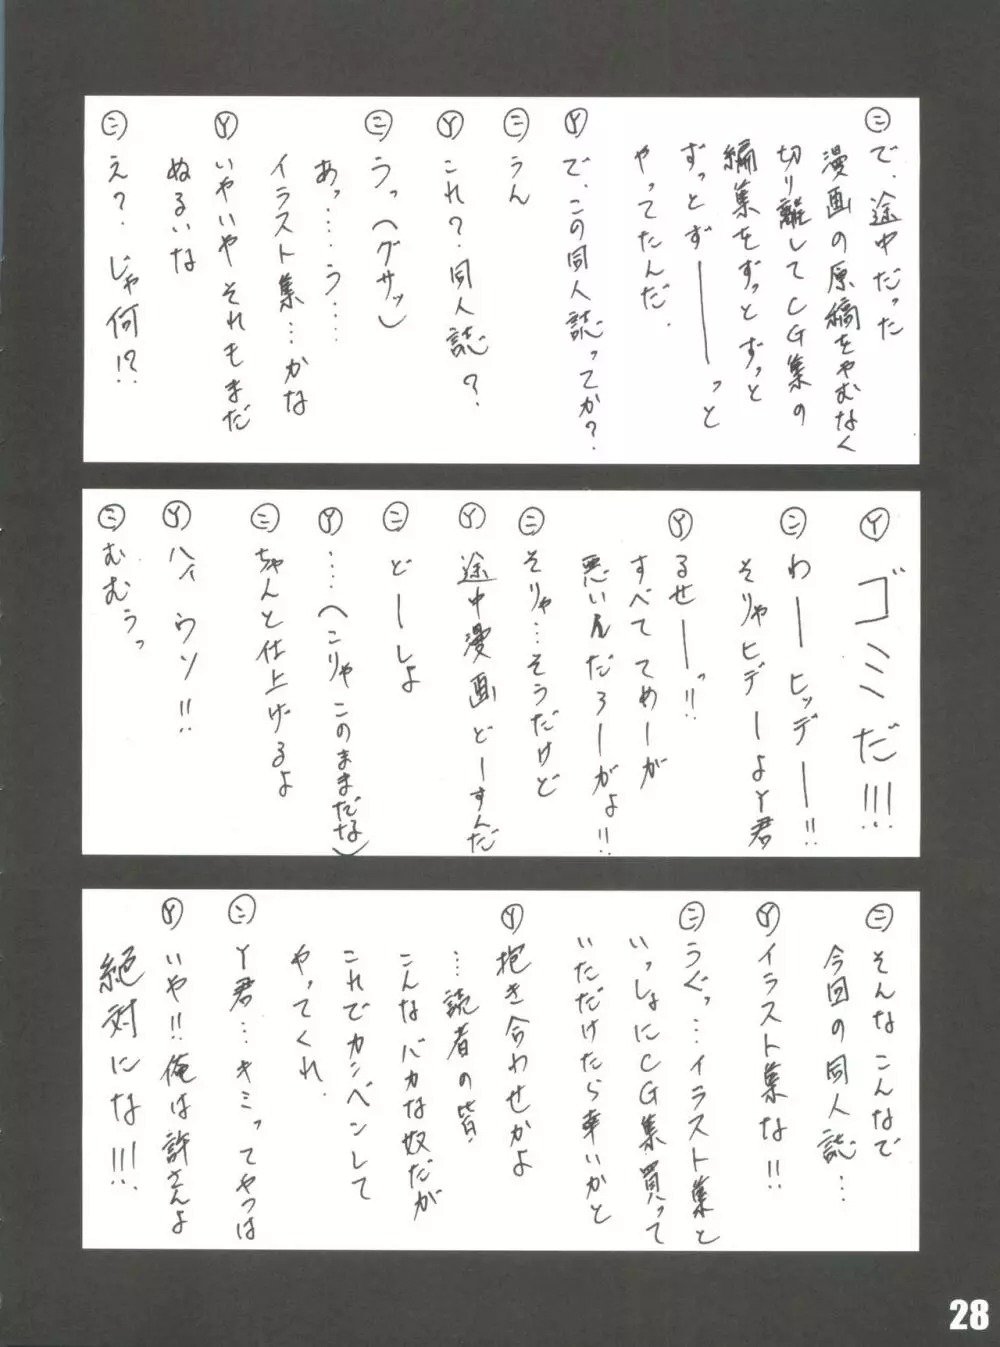 ㊁ で、途中だった
漫画の原稿をやむなく
切り離してCG集の
編集をずっとずっと
ずっとずーーーっと
やってたんだ.
Ⓨ で、この同人誌ってか?
㊁ うん
Ⓨ これ?同人誌?
㊁ うっ(グサッ)
あっ……う……
イラスト集…かな
Ⓨ いやいやそれもまだ
ぬるいな
㊁ え?じゃ何!?
Ⓨ ゴミだ!!!
㊁ わーーヒッデー!!
そりゃヒデーよY君
Ⓨ るせーーっ!!
すべててめーが
悪いんだろーがよ!!
㊁ そりゃ…そうだけど
Ⓨ 途中漫画どーすんだ
㊁ どーしよ
Ⓨ ……(こりゃこのままだな)
㊁ ちゃんと仕上げるよ
Ⓨ ハイウソ!!
㊁ むむぅっ
㊁ そんなこんなで
今回の同人誌…
Ⓨ イラスト集な!!
㊁ うぐっ…イラスト集と
いっしょにCG集買って
いただけたら幸いかと
Ⓨ 抱き合わせかよ
……読者の皆.
こんなバカな奴だが
これでカンベンして
やってくれ.
㊁ Y君…キミってやつは
Ⓨ いや!!俺は許さんよ
絶対にな!!!
28